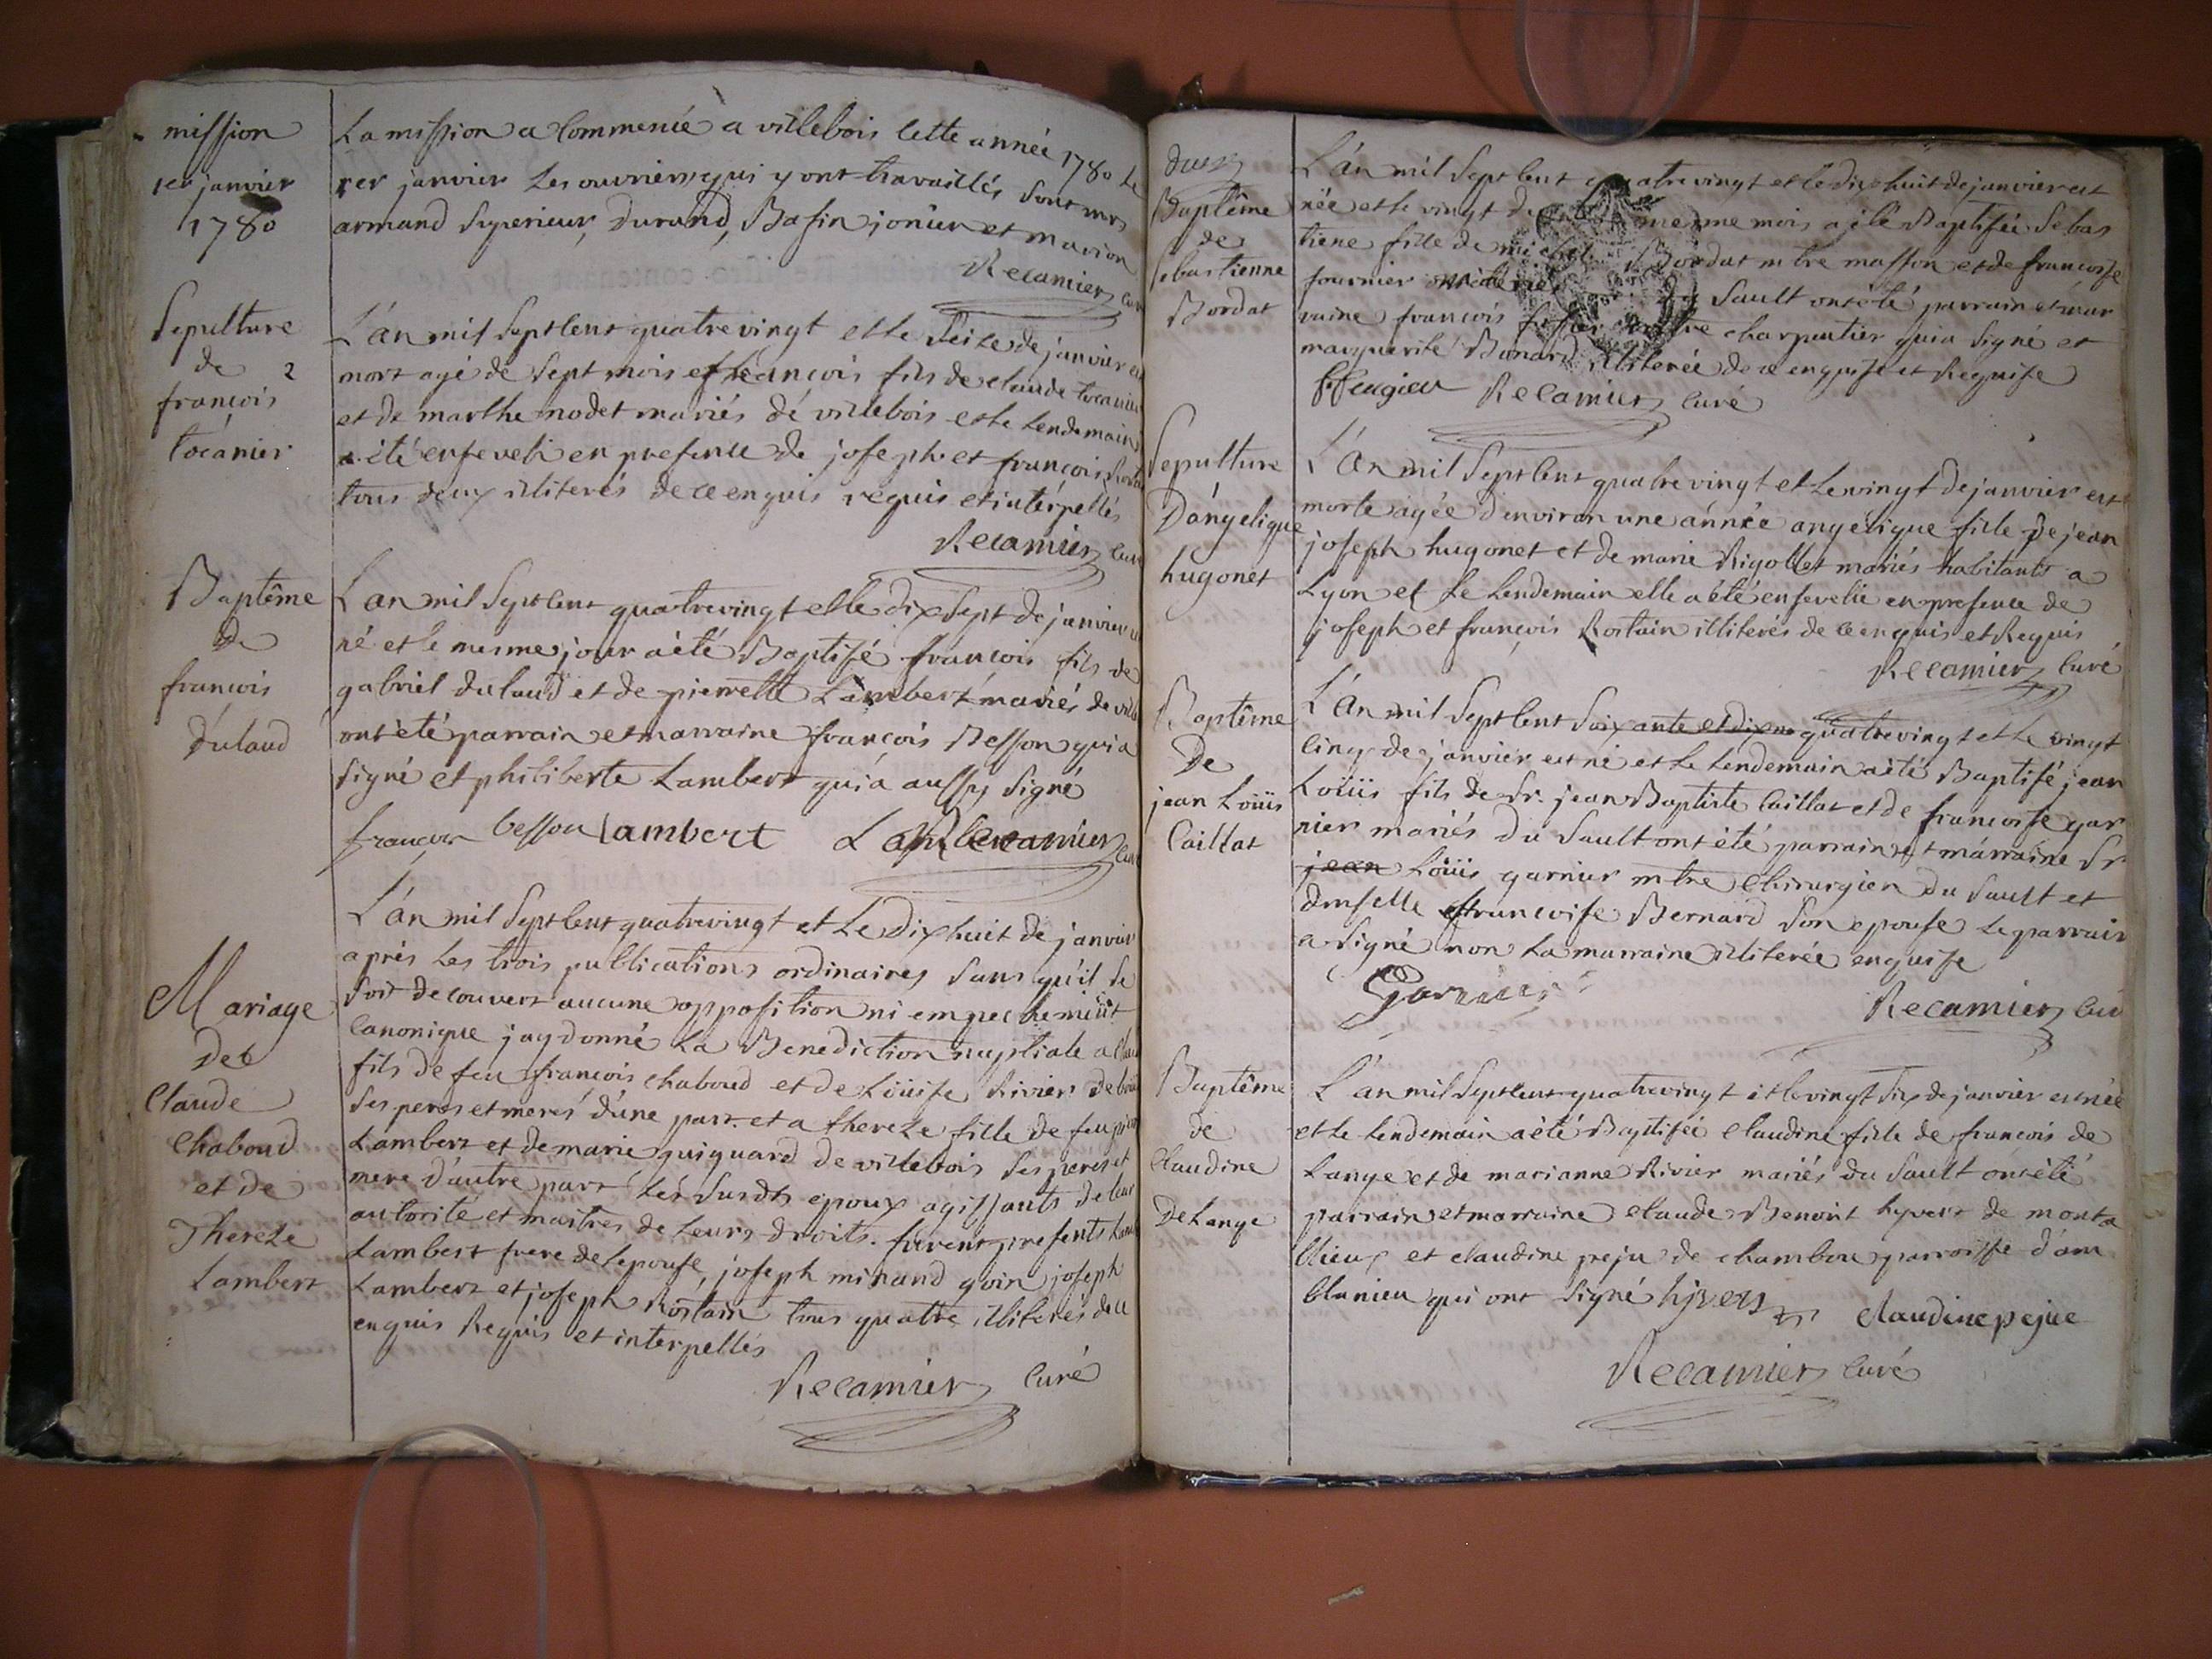 mission
1er janvier
1780
La mission a Commencé a villebois Cette année 1780 Le
1er janvier Les ouvriers qui y ont travaillés Sont mrs
armand Superieur, Durand, Basin jonier et marion
Recamier
Sepulture
de
françois
tocanier
L'an mil Sept Cent quatre vingt et le Seize de janvier
mort agé de Sept mois françois fils de claude tocanier
et de marthe nodet mariés de villebois et le Lendemain
a été enseveli en presence de joseph et françois
tous deux illiterés de ce enquis requis et interpellés
Recamier
Baptême
De
françois
dulaud
L'an mil Sept Cent quatre vingt et le dix Sept de janvier
né et le mesme jour a été Baptisé françois fils de
gabriel dulaud et de pierrette Lambert mariés de
ont été parrain et marraine françois Besson qui a
Signé et philiberte Lambert qui a aussy Signé
françois besson lambert Recamier
Mariage
De
Claude
Chaboud
et de
Thereze
Lambert
L'an mil Sept Cent quatre vingt et Le Dix huit de janvier
après Les trois publications ordinaires Sans qu'il Se
Soit decouvert aucune opposition ni empechement
Canonique j'ay donné La Benediction nuptiale a
fils de feu françois chaboud et de Loüise Rivier de
Ses peres et meres d'une part. et a thereze fille de feu
Lambert et de marie guiguard de villebois Ses peres et
mere d'autre part Les Susdts epoux agissants de leur
autorité et maitres de Leurs droits. furent presents
Lambert frere de l'epouse, joseph minand goin joseph
Lambert et joseph Rostain tous quatre illiterés de ce
enquis Requis et interpellés
Recamier Curé
Baptême
de
Sebastienne
Bordat
L'an mil Sept Cent quatre vingt et le dix huit de janvier est
née et le vingt du mesme mois a été Baptisée Sebas
tiene fille de michel Bordat mtre masson et de françoise
fournier mariés du Sault ont été parrain et mar
raine françois charpentier qui a Signé et
marguerite Bonard illiterée de ce enquise et Requise
Recamier Curé
Sepulture
D'angelique
hugonet
L'An mil Sept Cent quatre vingt et Le vingt de janvier est
morte agée d'environ une année angelique fille De jean
joseph hugonet et de marie Rigollet mariés habitants a
Lyon et Le Lendemain elle a été ensevelie en presence de
joseph et françois Rostain illiterés de ce enquis et Requis
Recamier Curé
Baptême
De
jean Loüis
Caillat
L'An mil Sept Cent Soixante et dix quatre vingt et Le vingt
Cinq de janvier est né et Le Lendemain a été Baptisé jean
Loüis fils de Sr. jean Baptiste Caillat et de françoise gar
nier mariés du Sault ont été parrain et marraine Sr
jean Loüis garnier mtre Chirurgien du Sault et
dmselle françoise Bernard Son epouse Le parrain
a Signé non La marraine illiterée enquise
Garnier
Recamier Curé
Baptême
de
Claudine
DeLange
L'an mil Sept Cent quatre vingt et le vingt Six de janvier est née
et Le Lendemain a été Baptisée Claudine fille de françois de
Lange et de marianne Rivier mariés du Sault ont été
parrain et marraine claude Benoit hyvert de monta
llieux et claudine peju de chambou parroisse d'am
blanieu qui ont Signé hyvert claudine pejue
Recamier Curé